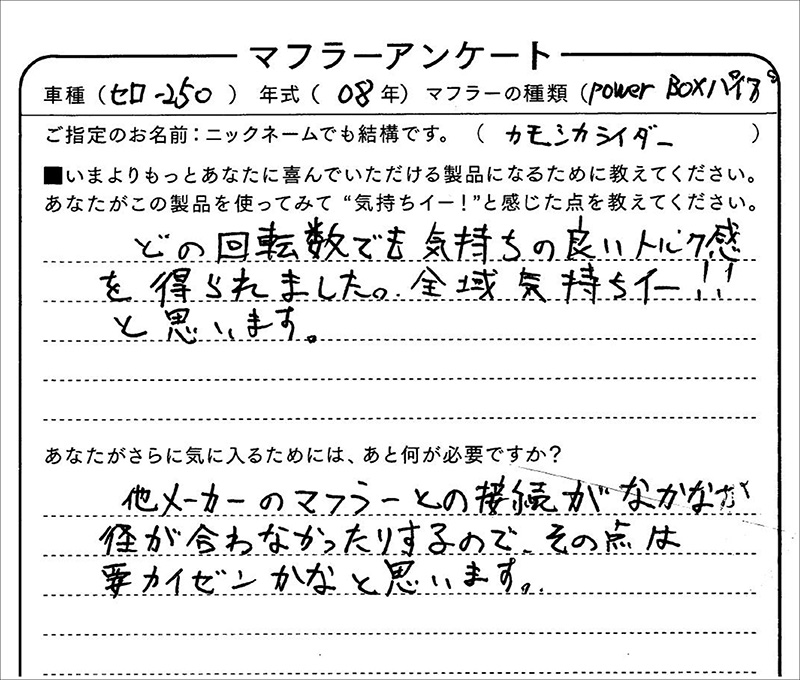 マフラーアンケート
車種（セロー250）年式（08年）マフラーの種類（power BOXパイプ）
ご指定のお名前：ニックネームでも結構です。（カモシカライダー）
■いまよりもっとあなたに喜んでいただける製品になるために教えてください。
あなたがこの製品を使ってみて“気持ちイー！”と感じた点を教えてください。
どの回転数でも気持ちの良いトルク感
を得られました。全域気持ちイー!!
と思います。
あなたがさらに気に入るためには、あと何が必要ですか？
他メーカーのマフラーとの接続がなかなか
径が合わなかったりするので、その点は
要カイゼンかなと思います。